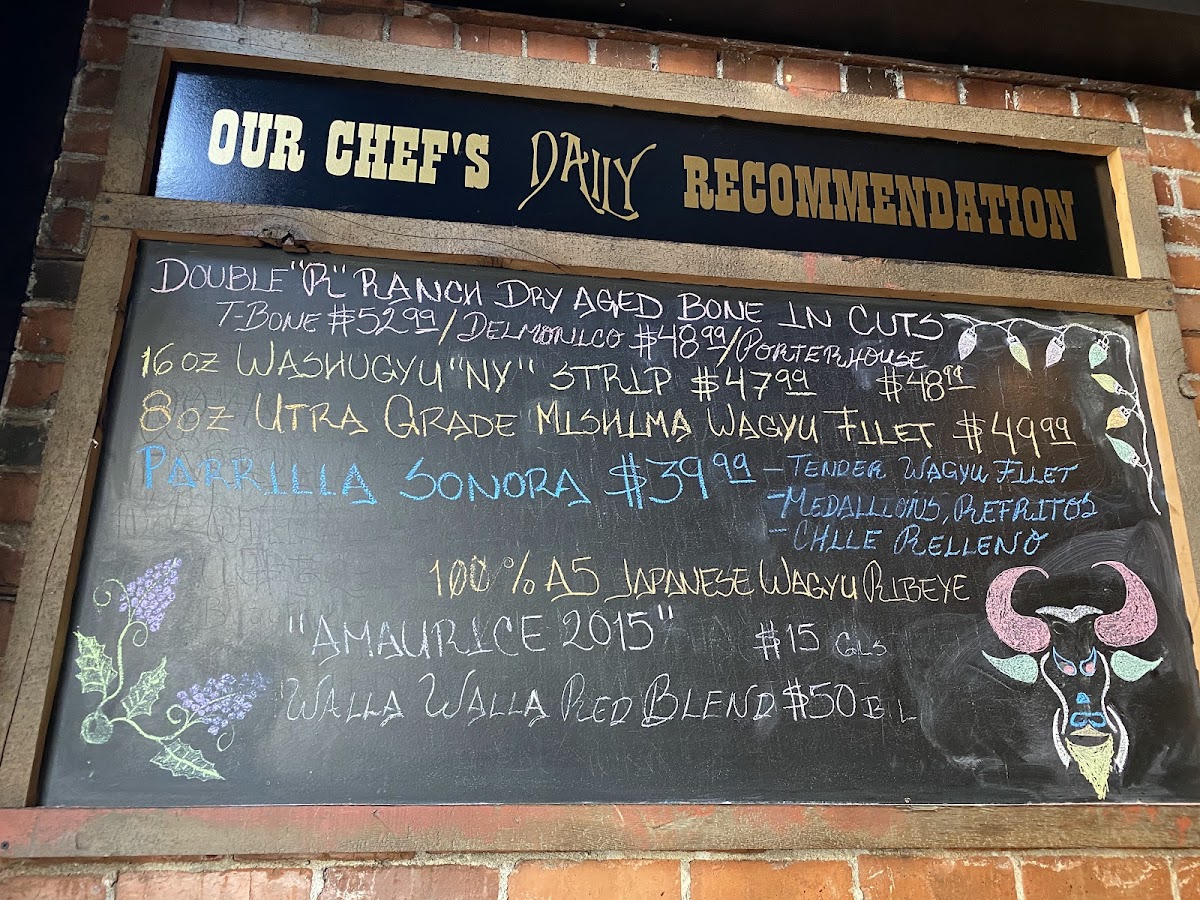 OUR CHEF'S DAILY RECOMMENDATION
DOUBLE "R" RANCH DRY AGED BONE IN CUTS
T-BONE $52.99 / DELMONICO $48.99 / PORTERHOUSE
$48.99
16 OZ WASHUGYU "NY" STRIP $47.99
8 OZ UTRA GRADE MISHIMA WAGYU FILET $49.99
PARRILLA SONORA $39.99 - TENDER WAGYU FILET
- MEDALLIONS, REFRITOS
- CHLLE RELLENO
100% A5 JAPANESE WAGYU RIBEYE
"AMAURICE 2015" $15 GLS
WALLA WALLA RED BLEND $50 BTL